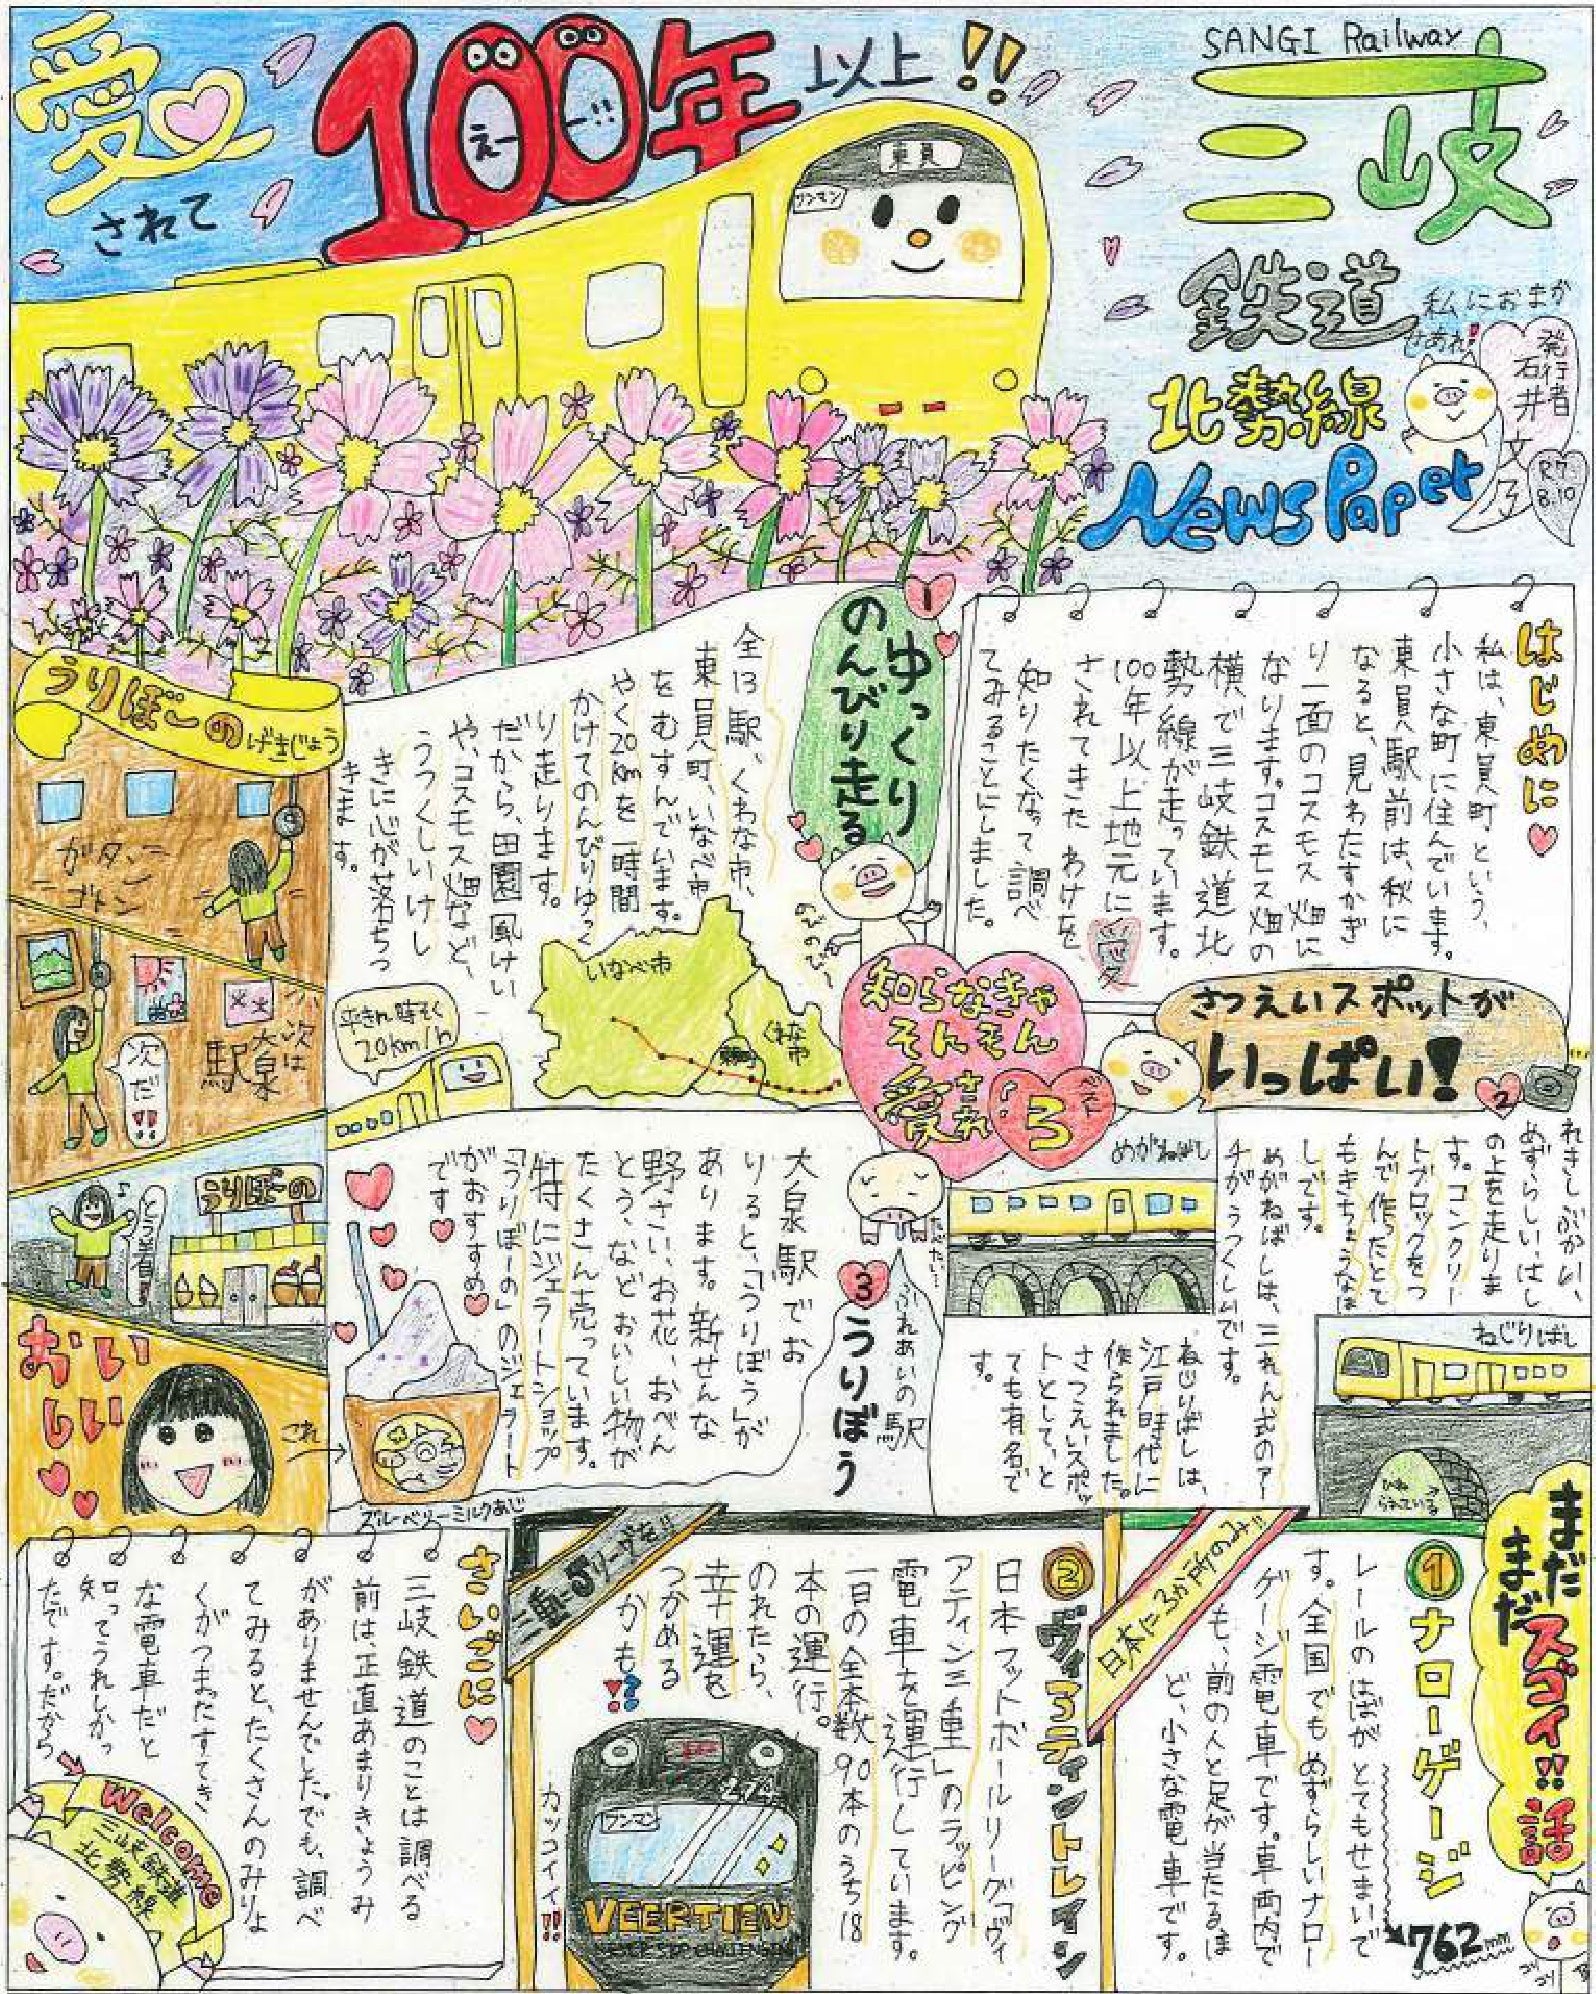 愛されて
100年以上!!
えーー!!
東員
ワンマン
SANGI Railway
三岐
鉄道
北勢線
NewsPaper
私におまか
発行者
石井文
R7
8.10
はじめに
私は、東員町という、
小さな町に住んでいます。
東員駅前は、秋に
なると、見わたすかぎ
り一面のコスモス畑に
なります。コスモス畑の
横で三岐鉄道北
勢線が走っています。
100年以上地元に愛
されてきたわけを
知りたくなって調べ
てみることにしました。
1
ゆっくり
のんびり走る
全13駅、くわな市、
東員町、いなべ市
をむすんでいます。
やく20kmを一時間
かけてのんびりゆっく
り走ります。
だから、田園風けい
や、コスモス畑など、
うつくしいけし
きに心が落ちつ
きます。
いなべ市
東員町
くわな市
平きん時そく
20km/h
知らなきゃ
そんそん
愛され
ベスト
3
さつえいスポットが
いっぱい!
2
れきしぶかい、
めずらしい、はし
の上を走りま
す。コンクリー
トブロックをつ
んで作ったとて
もきちょうなは
しです。
めがねばしは、三れん式のアー
チがうつくしいです。
めがねばし
ねじりばしは、
江戸時代に
作られました。
さつえいスポッ
トとして、と
ても有名で
す。
ねじりばし
ひね
られている
3
ふれあいの駅
うりぼう
たべたい…
大泉駅でお
りると、「うりぼう」が
あります。新せんな
野さい、お花、おべん
とう、などおいしい物が
たくさん売っています。
特にジェラートショップ
「うりぼーの」のジェラート
がおすすめ
です
ブルーベリーミルクあじ
うりぼーのげきじょう
ガタン
ゴトン
次は
大泉
駅
次だ!!
うりぼーの
とう着!
おいしい
これ
まだまだスゴイ!!話
①ナローゲージ
レールのはばがとてもせまいで
す。全国でもめずらしいナロー
ゲージ電車です。車両内で
も、前の人と足が当たるほ
ど、小さな電車です。
762mm
コリコリ
日本に3か所のみ!!
②ヴィアティントレイン
日本フットボールリーグ「ヴィ
アティン三重」のラッピング
電車を運行しています。
一日の全本数90本のうち18
本の運行。
のれたら、
幸運を
つかめる
かも!?
三重にJリーグを!!
ワンマン
VEERTIEN
NEVER STOP CHALLENGING
カッコイイ!!
さいごに
三岐鉄道のことは調べる
前は、正直あまりきょうみ
がありませんでした。でも、調べ
てみると、たくさんのみりょ
くがつまったすてき
な電車だと
知ってうれしかっ
たです。だから
Welcome
三岐鉄道
北勢線